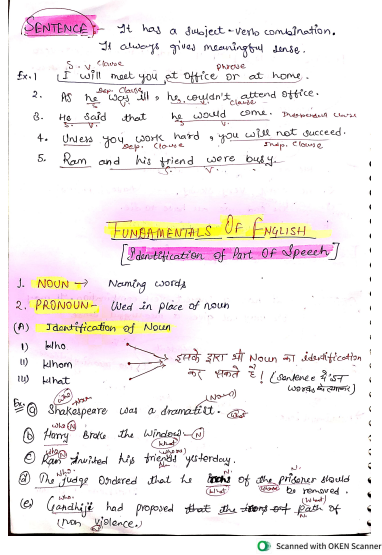 SENTENCE :- It has a subject + verb combination.
It always gives meaningful sense.
S. V. Clause Phrase
Ex.1 I will meet you at office or at home.
Dep. Clause
2. As he was ill, he couldn't attend office.
Clause
3. He said that he would come. Independent Clause
S. V. S. V.
4. Unless you work hard, you will not succeed.
Dep. Clause Indp. Clause
5. Ram and his friend were busy.
S. V.
FUNDAMENTALS OF ENGLISH
[Identification of Part Of Speech]
1. NOUN → Naming words
2. PRONOUN - Used in place of noun
(A) Identification of Noun
i) Who
ii) Whom
iii) What
इसके द्वारा भी Noun का identification
कर सकते है! (Sentence में इन
who Noun Noun
Ex- (a) Shakespeare was a dramatist. What
who N
(b) Harry broke the window. N
What
who whom
(c) Ram invited his friends yesterday.
N
who N. N.
(d) The judge ordered that he of the prisoner should
What be removed.
who What
(e) Gandhiji had proposed that the path of
N
(non violence.)
Scanned with OKEN Scanner